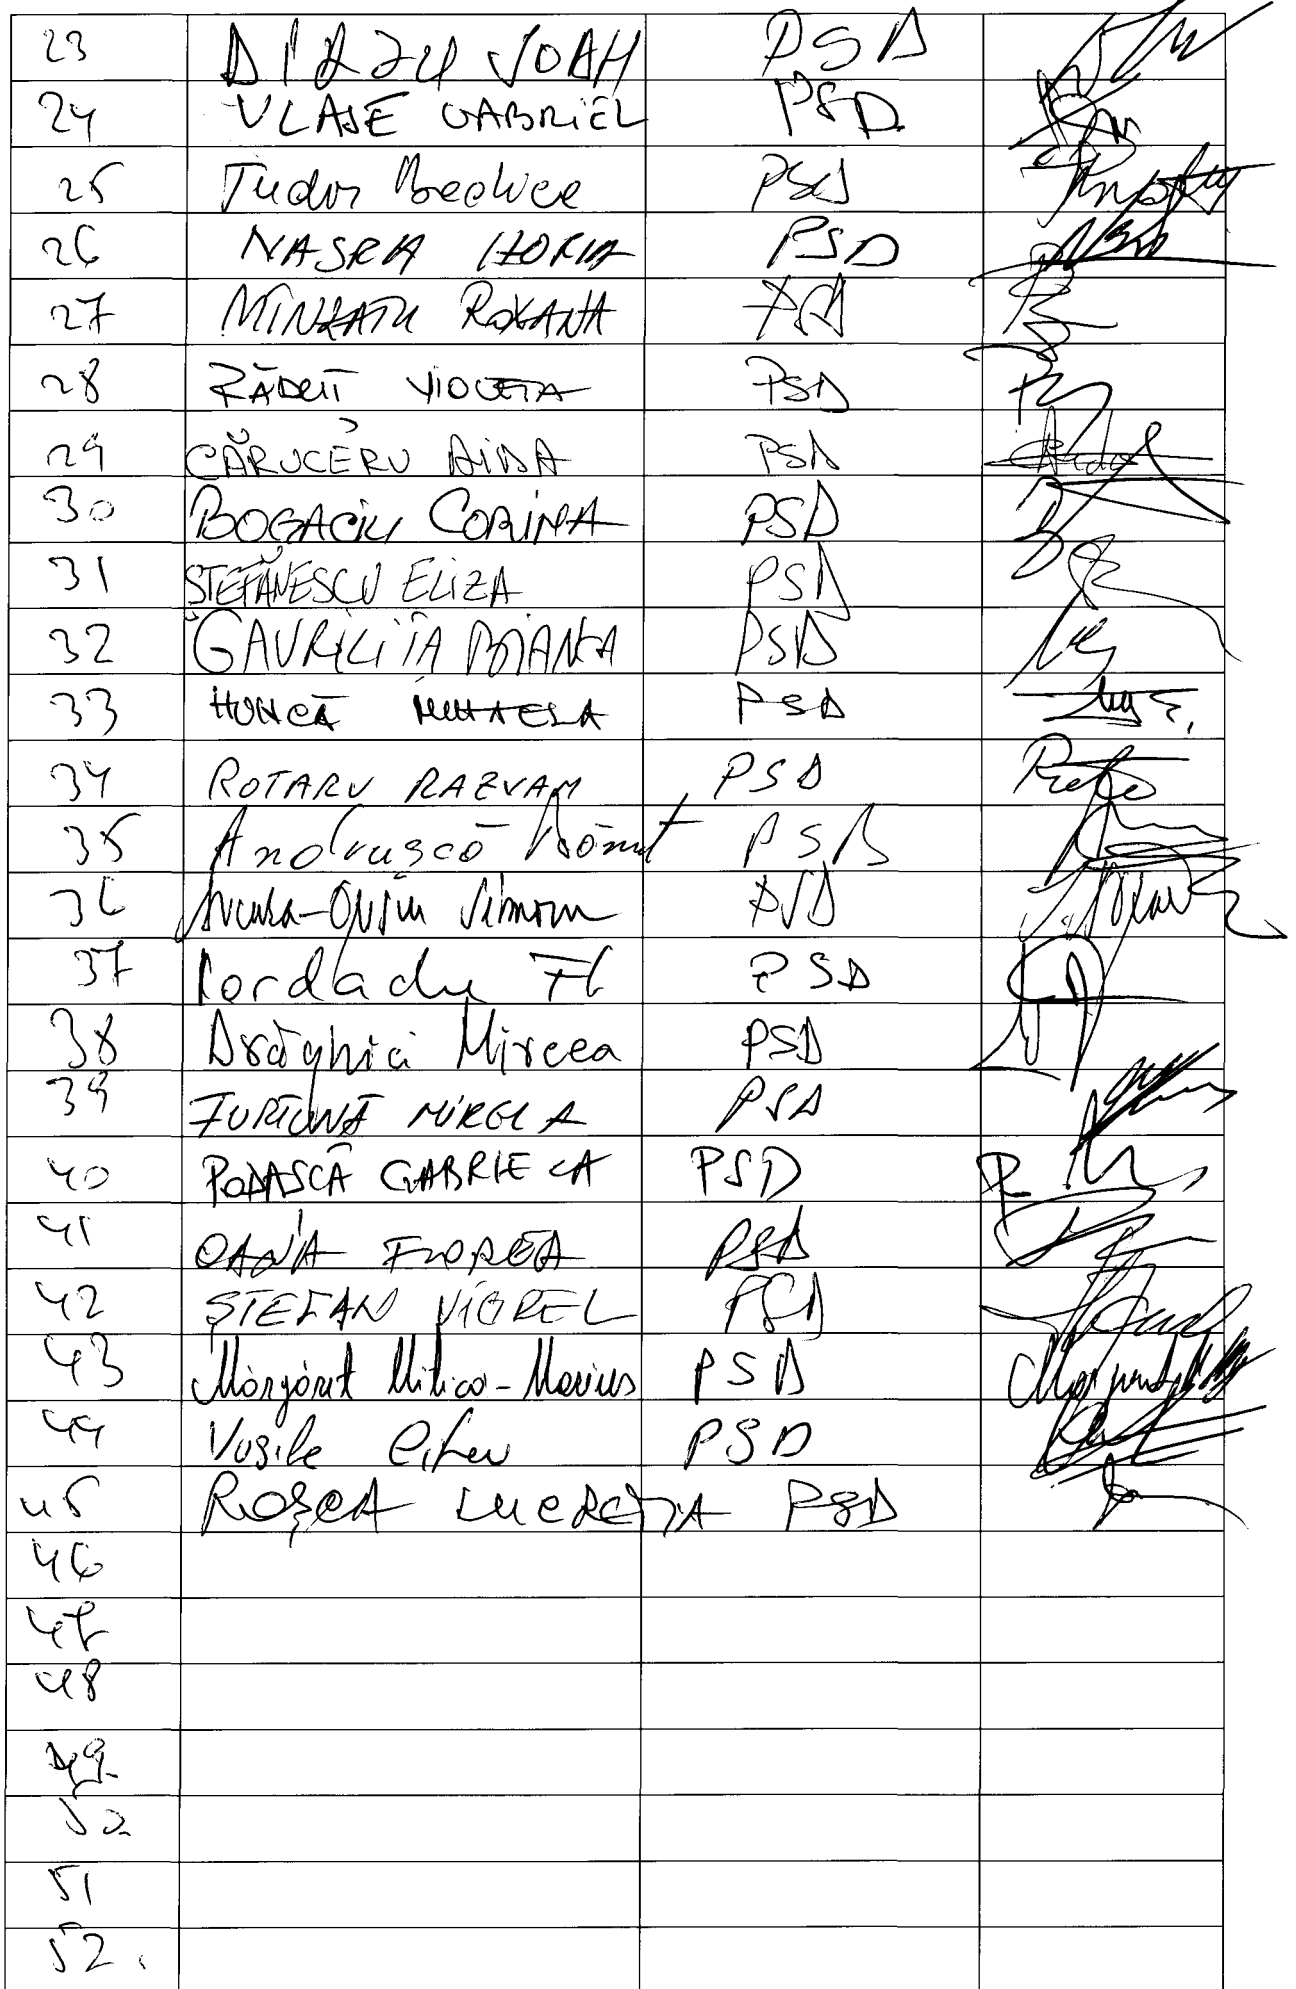 23 DÎRZU IOAN PSD
24 VLASE GABRIEL PSD
25 Tudor Beatrice PSD
26 NASRA HORIA PSD
27 MINZATU ROXANA PSD
28 RĂDUȚ VIOLETA PSD
29 CĂRUCERU AIDA PSD
30 BOGACIU CORINA PSD
31 ȘTEFĂNESCU ELIZA PSD
32 GAVRILIȚĂ BIANCA PSD
33 HUNCĂ MIHAELA PSD
34 ROTARU RAZVAN PSD
35 Andrușcă Dănuț PSD
36 PSD
37 Iordache Fl PSD
38 Drăghici Mircea PSD
39 FURTUNĂ MIRELA PSD
40 PODAȘCĂ GABRIELA PSD
41 OANA FLOREA PSD
42 ȘTEFAN VIOREL PSD
43 Mărgărit Mitică-Marius PSD
44 Vasile PSD
45 ROȘCA LUCREȚIA PSD
46
47
48
49
50
51
52.